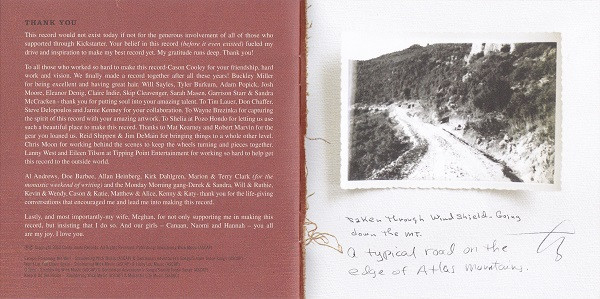 THANK YOU
This record would not exist today if not for the generous involvement of all of those who
supported through Kickstarter. Your belief in this record (before it even existed) fueled my
drive and inspiration to make my best record yet. My gratitude runs deep. Thank you!
To all those who worked so hard to make this record-Cason Cooley for your friendship, hard
work and vision. We finally made a record together after all these years! Buckley Miller
for being excellent and having great hair. Will Sayles, Tyler Burkum, Adam Popick, Josh
Moore, Eleanor Denig, Claire Indie, Skip Cleavenger, Sarah Masen, Garrison Starr & Sandra
McCracken - thank you for putting soul into your amazing talent. To Tim Lauer, Don Chaffer,
Steve Delopoulos and Jamie Kenney for your collaboration. To Wayne Brezinka for capturing
the spirit of this record with your amazing artwork. To Shelia at Pozo Hondo for letting us use
such a beautiful place to make this record. Thanks to Mat Kearney and Robert Marvin for the
gear you loaned us. Reid Shippen & Jim DeMain for bringing things to a whole other level.
Chris Moon for working behind the scenes to keep the wheels turning and pieces together.
Lanny West and Eileen Tilson at Tipping Point Entertainment for working so hard to help get
this record to the outside world.
Al Andrews, Don Barbee, Allan Heinberg, Kirk Dahlgren, Marion & Terry Clark (for
the monastic weekend of writing) and the Monday Morning gang-Derek & Sandra, Will & Ruthie,
Kevin & Wendy, Cason & Katie, Matthew & Alice, Kenny & Katy- thank you for the life-giving
conversations that encouraged me and lead me into making this record.
Lastly, and most importantly-my wife, Meghan, for not only supporting me in making this
record, but insisting that I do so. And our girls – Canaan, Naomi and Hannah – you all
are my joy. I love you.
Taken through windshield. Going
down the MT.
A typical road on the
edge of Atlas Mountains.